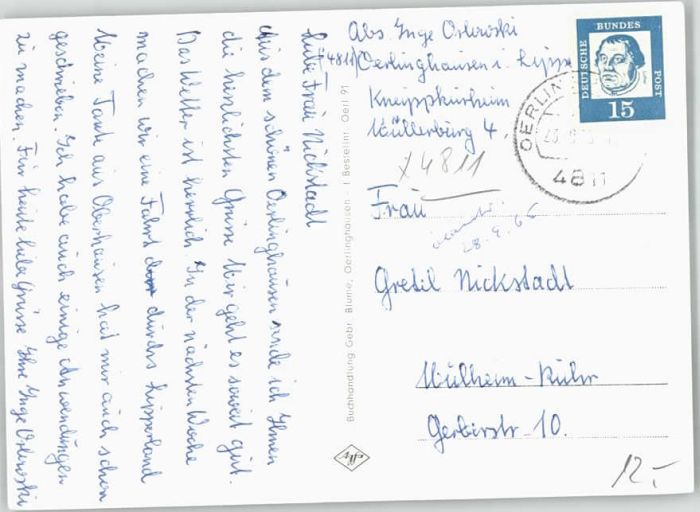 Liebe Frau Nickstadt
Aus dem schönen Oerlinghausen sende ich Ihnen
die herzlichsten Grüsse. Mir geht es soweit gut.
Das Wetter ist herrlich. In der nächsten Woche
machen wir eine Fahrt durchs Lipperland
Meine Tante aus Oberhausen hat mir auch schon
geschrieben. Ich habe auch einige Anwendungen
zu machen. Für heute liebe Grüsse Ihre Inge Orlowski
Abs. Inge Orlowski
(4811) Oerlinghausen i. Lippe
Kneippkurheim
Müllerburg 4.
x 4811
DEUTSCHE BUNDES POST
15
OERLING
4811
Frau
28.9.65
Gretil Nickstadt
Mülheim-Ruhr
Gerberstr. 10.
12,-
Buchhandlung Gebr. Blume, Oerlinghausen - I Bestellnr. Oerl 91
Agfa